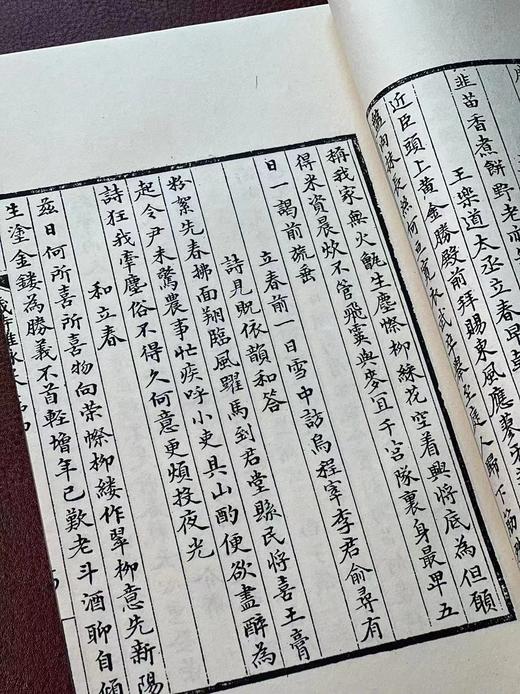 韭苗香煮餅野老
王樂道大丞立春早
近臣頭上黃金勝殿前拜賜東風應蓼
稱我家無火甑生塵際柳綵花空看興將底為但願
得米資晨炊不管飛霙與麥宜千宮隊裏身最早五
日一謁前旒垂
立春前一日雪中訪烏程宰李君俞尋有
詩見貺依韻和答
粉絮先春拂面翔臨風躍馬到君堂縣民將喜王膏
起令尹未驚農事忙疾呼小吏具山酌便欲盡醉為
詩狂我牽塵俗不得久何意更煩投夜光
和立春
茲日何所喜所喜物向榮際柳縷作翠柳意先新陽
生塗金鏤為勝義不首輕增年已歎老斗酒聊自傾